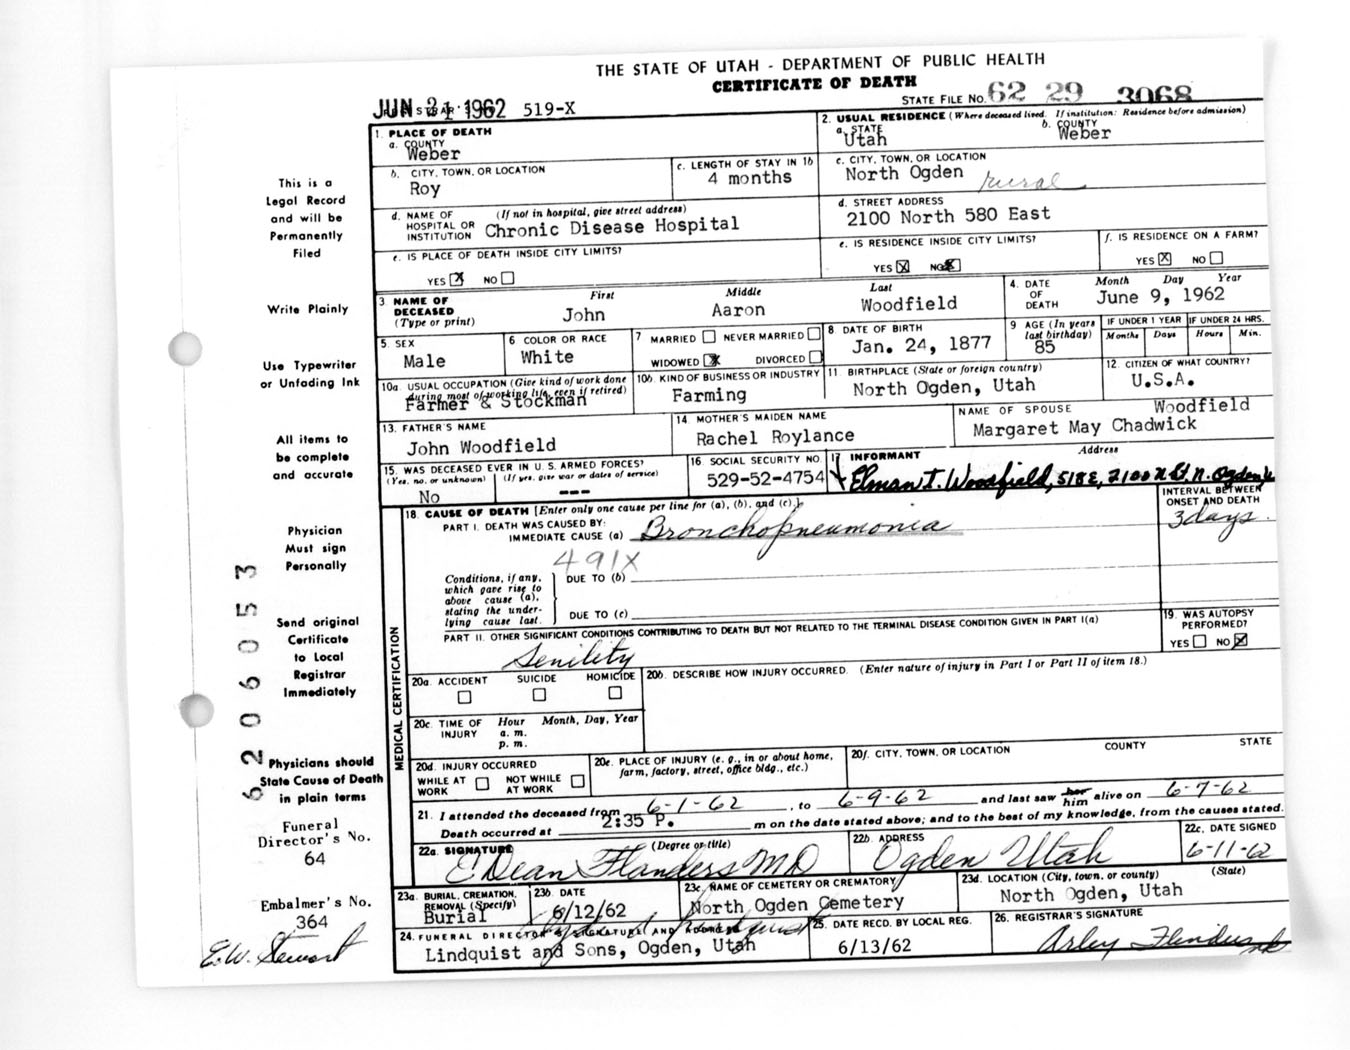 THE STATE OF UTAH - DEPARTMENT OF PUBLIC HEALTH
CERTIFICATE OF DEATH
JUN 21 1962 519-X
STATE FILE NO. 62 29 3068
This is a
Legal Record
and will be
Permanently
Filed
Write Plainly
Use Typewriter
or Unfading Ink
All items to
be complete
and accurate
Physician
Must sign
Personally
Send original
Certificate
to Local
Registrar
Immediately
Physicians should
State Cause of Death
in plain terms
Funeral
Director's No.
64
Embalmer's No.
364
E.W. Stewart
6206053
1. PLACE OF DEATH
a. COUNTY
Weber
2. USUAL RESIDENCE (Where deceased lived. If institution: Residence before admission)
a. STATE
Utah
b. COUNTY
Weber
b. CITY, TOWN, OR LOCATION
Roy
c. LENGTH OF STAY IN 1b
4 months
c. CITY, TOWN, OR LOCATION
North Ogden rural
d. NAME OF HOSPITAL OR INSTITUTION (If not in hospital, give street address)
Chronic Disease Hospital
d. STREET ADDRESS
2100 North 580 East
e. IS PLACE OF DEATH INSIDE CITY LIMITS?
YES X NO
e. IS RESIDENCE INSIDE CITY LIMITS?
YES X NO X
f. IS RESIDENCE ON A FARM?
YES X NO
3. NAME OF DECEASED (Type or print)
First Middle Last
John Aaron Woodfield
4. DATE OF DEATH
Month Day Year
June 9, 1962
5. SEX
Male
6 COLOR OR RACE
White
7 MARRIED NEVER MARRIED
WIDOWED X DIVORCED
8 DATE OF BIRTH
Jan. 24, 1877
9 AGE (In years last birthday)
85
IF UNDER 1 YEAR
Months Days
IF UNDER 24 HRS.
Hours Min.
10a. USUAL OCCUPATION (Give kind of work done during most of working life, even if retired)
Farmer & Stockman
10b. KIND OF BUSINESS OR INDUSTRY
Farming
11. BIRTHPLACE (State or foreign country)
North Ogden, Utah
12. CITIZEN OF WHAT COUNTRY?
U.S.A.
13. FATHER'S NAME
John Woodfield
14. MOTHER'S MAIDEN NAME
Rachel Roylance
NAME OF SPOUSE Woodfield
Margaret May Chadwick
15. WAS DECEASED EVER IN U. S. ARMED FORCES?
(Yes, no, or unknown) (If yes, give war or dates of service)
No ---
16. SOCIAL SECURITY NO.
529-52-4754
17 INFORMANT Address
Elman I. Woodfield, 518 E, 2100 N St. N. Ogden, U
18. CAUSE OF DEATH [Enter only one cause per line for (a), (b), and (c).]
INTERVAL BETWEEN ONSET AND DEATH
PART I. DEATH WAS CAUSED BY:
IMMEDIATE CAUSE (a) Bronchopneumonia
3 days.
491X
Conditions, if any, which gave rise to above cause (a), stating the underlying cause last.
DUE TO (b)
DUE TO (c)
PART II. OTHER SIGNIFICANT CONDITIONS CONTRIBUTING TO DEATH BUT NOT RELATED TO THE TERMINAL DISEASE CONDITION GIVEN IN PART I(a)
Senility
19. WAS AUTOPSY PERFORMED?
YES NO X
MEDICAL CERTIFICATION
20a. ACCIDENT SUICIDE HOMICIDE
20b. DESCRIBE HOW INJURY OCCURRED. (Enter nature of injury in Part I or Part II of item 18.)
20c. TIME OF INJURY
Hour Month, Day, Year
a. m.
p. m.
20d. INJURY OCCURRED
WHILE AT WORK NOT WHILE AT WORK
20e. PLACE OF INJURY (e. g., in or about home, farm, factory, street, office bldg., etc.)
20f. CITY, TOWN, OR LOCATION COUNTY STATE
21. I attended the deceased from 6-1-62, to 6-9-62 and last saw her him alive on 6-7-62
Death occurred at 2:35 P. m on the date stated above; and to the best of my knowledge, from the causes stated.
22a. SIGNATURE (Degree or title)
E Dean Flanders MD
22b. ADDRESS
Ogden Utah
22c. DATE SIGNED
6-11-62
23a. BURIAL, CREMATION, REMOVAL (Specify)
Burial
23b. DATE
6/12/62
23c. NAME OF CEMETERY OR CREMATORY
North Ogden Cemetery
23d. LOCATION (City, town, or county) (State)
North Ogden, Utah
24. FUNERAL DIRECTOR'S SIGNATURE AND ADDRESS
Lindquist and Sons, Ogden, Utah
25. DATE RECD. BY LOCAL REG.
6/13/62
26. REGISTRAR'S SIGNATURE